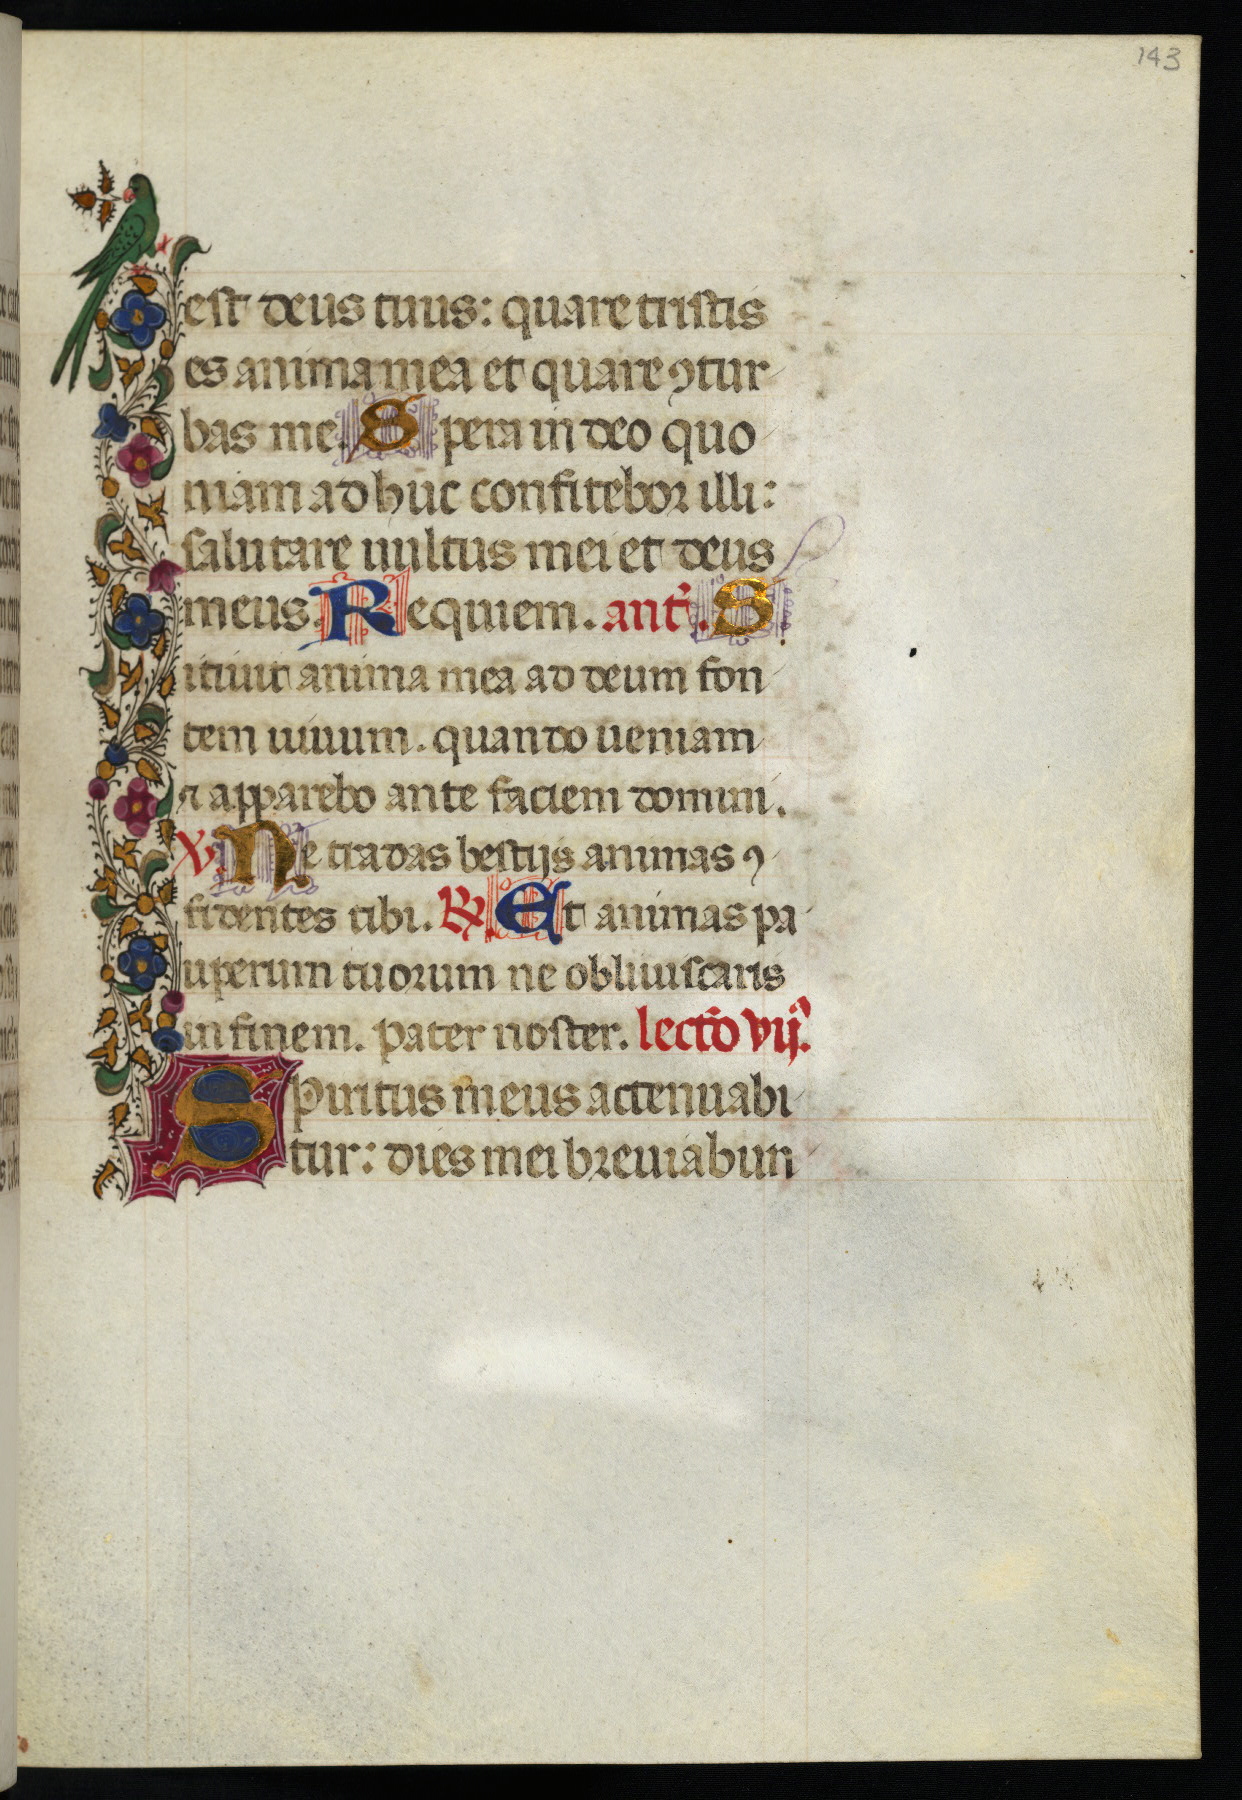 143
est deus tuus: quare tristis
es anima mea et quare ꝯtur
bas me. Spera in deo quo
niam adhuc confitebor illi:
salutare uultus mei et deus
meus. Requiem. ant̄. S
itiuit anima mea ad deum fon
tem uiuum. quando ueniam
⁊ apparebo ante faciem domini.
V. Ne tradas bestijs animas ꝯ
fidentes tibi. ℟. Et animas pa
uperum tuorum ne obliuiscaris
in finem. pater noster. lectō vijᵃ.
Spiritus meus actenuabi
tur: dies mei breuiabun